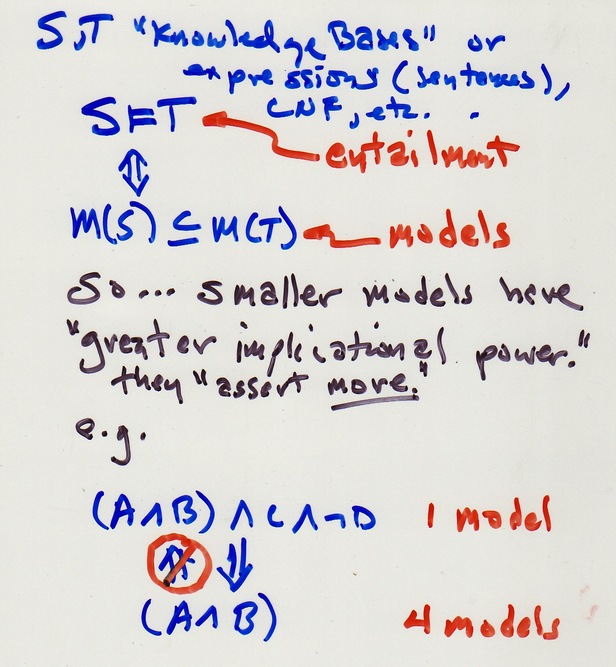 S,T "Knowledge Bases" or
expressions (sentences),
CNF, etc. .
S⊨T
entailment
⇕
M(S) ⊆ M(T)
models
So... smaller models have
"greater implicational power."
they "assert more."
e.g.
(A∧B) ∧ C ∧ ¬D 1 model
⇑ ⇓
(A∧B) 4 models